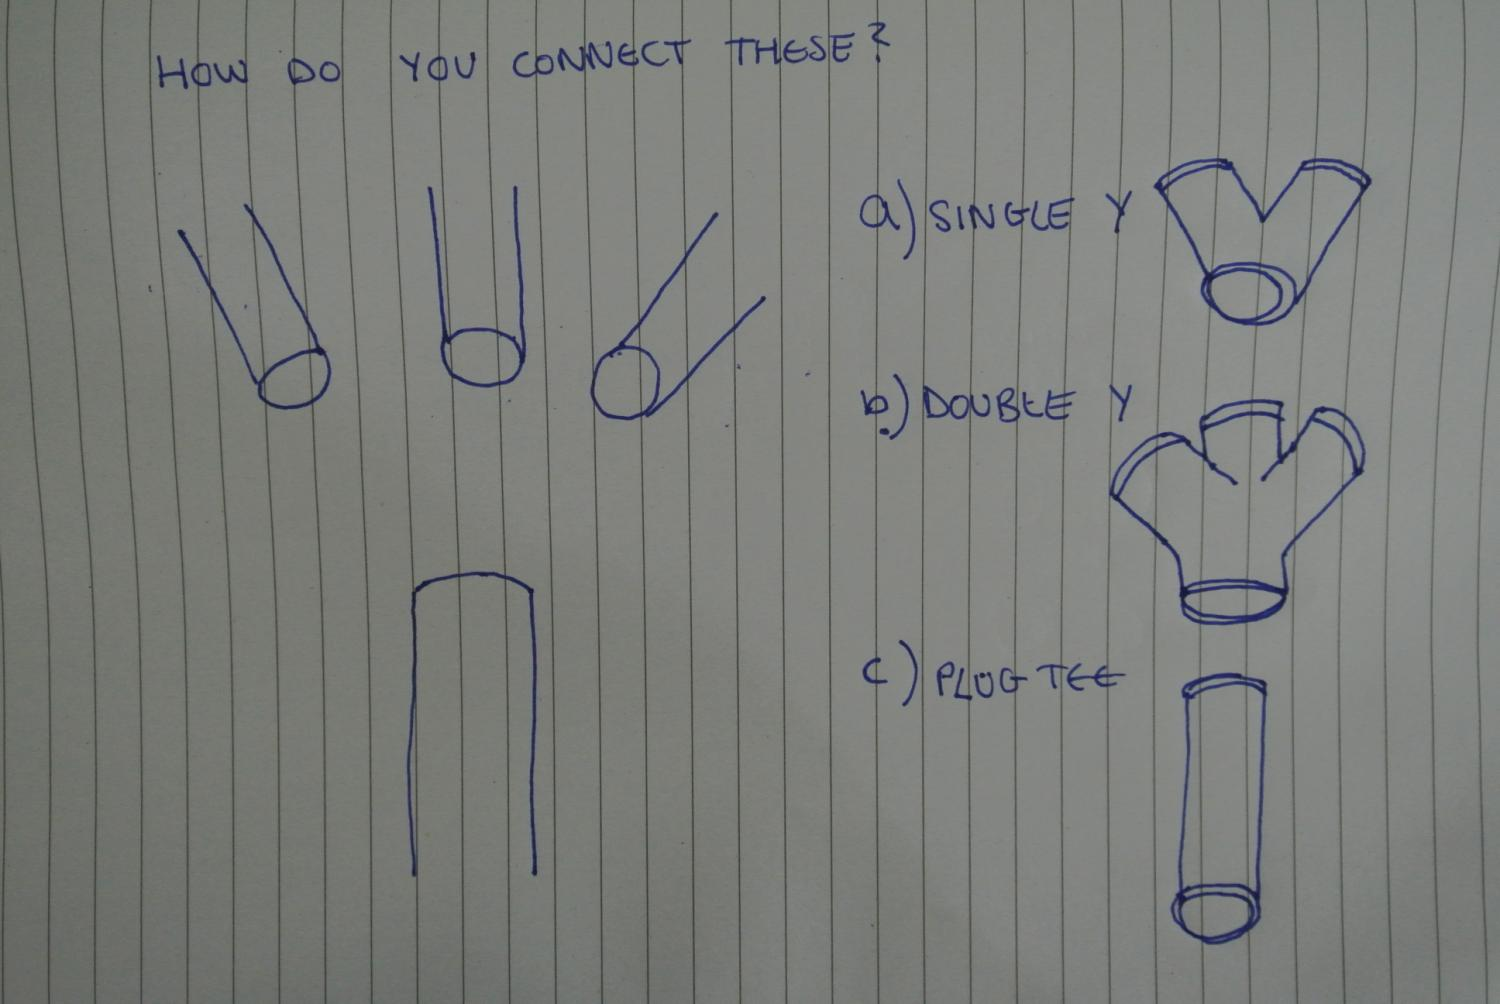 HOW DO YOU CONNECT THESE?
a) SINGLE Y
b.) DOUBLE Y
c) PLUG TEE